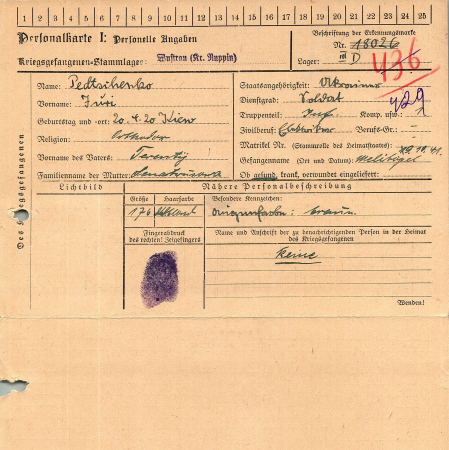 1 2 3 4 5 6 7 8 9 10 11 12 13 14 15 16 17 18 19 20 21 22 23 24 25
Personalkarte I: Personelle Angaben
Kriegsgefangenen-Stammlager: Wustrau (Kr. Ruppin)
Beschriftung der Erkennungsmarke
Nr. 18026
Lager: III D
436
Des Kriegsgefangenen
Name: Pedtschenko
Vorname: Juri
Geburtstag und -ort: 20.4.20 Kiew
Religion: Orthodox
Vorname des Vaters: Terentij
Familienname der Mutter:
Staatsangehörigkeit: Ukrainer
Dienstgrad: Soldat
429
Truppenteil: Inf. Komp. usw.:
Zivilberuf: Berufs-Gr.:
Matrikel Nr. (Stammrolle des Heimatstaates):
Gefangennahme (Ort und Datum): Melitopol
Ob gesund, krank, verwundet eingeliefert:
Lichtbild
Nähere Personalbeschreibung
Größe
Haarfarbe
Besondere Kennzeichen:
176
Augenfarbe: braun.
Fingerabdruck
des rechten! Zeigefingers
Name und Anschrift der zu benachrichtigenden Person in der Heimat
des Kriegsgefangenen
keine
Wenden!